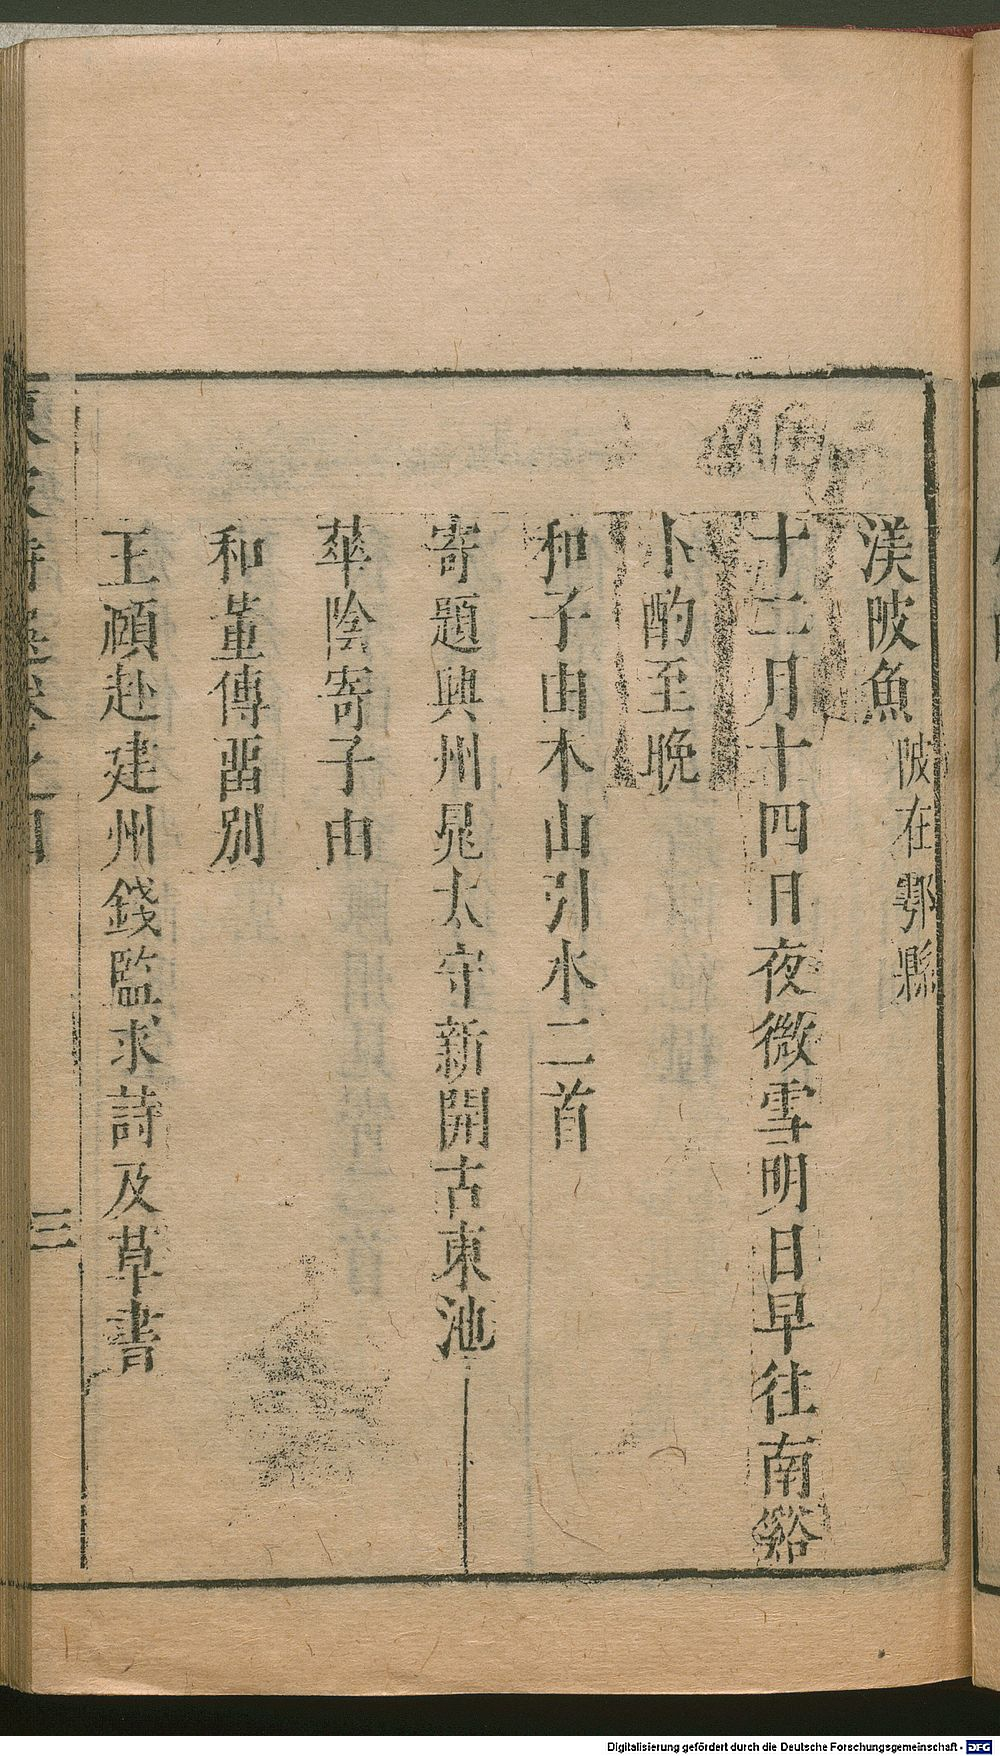 渼陂魚陂在鄠縣
十二月十四日夜微雪明日早往南谿
小酌至晚
和子由木山引水二首
寄題興州晁太守新開古東池
華陰寄子由
和董傳畱別
王頤赴建州錢監求詩及草書
三
Digitalisierung gefördert durch die Deutsche Forschungsgemeinschaft - DFG